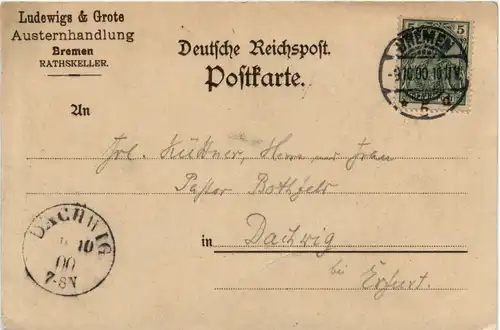 Ludewigs & Grote
Austernhandlung
Bremen
RATHSKELLER.
Deutsche Reichspost.
Postkarte.
5 5
BREMEN
-9.10.00. 10-11V.
* 5 d
An
Frl. Küttner, Herrn und Frau
Pastor Bothfeld
in Dachwig
bei Erfurt.
DACHWIG
10
00
7-8V